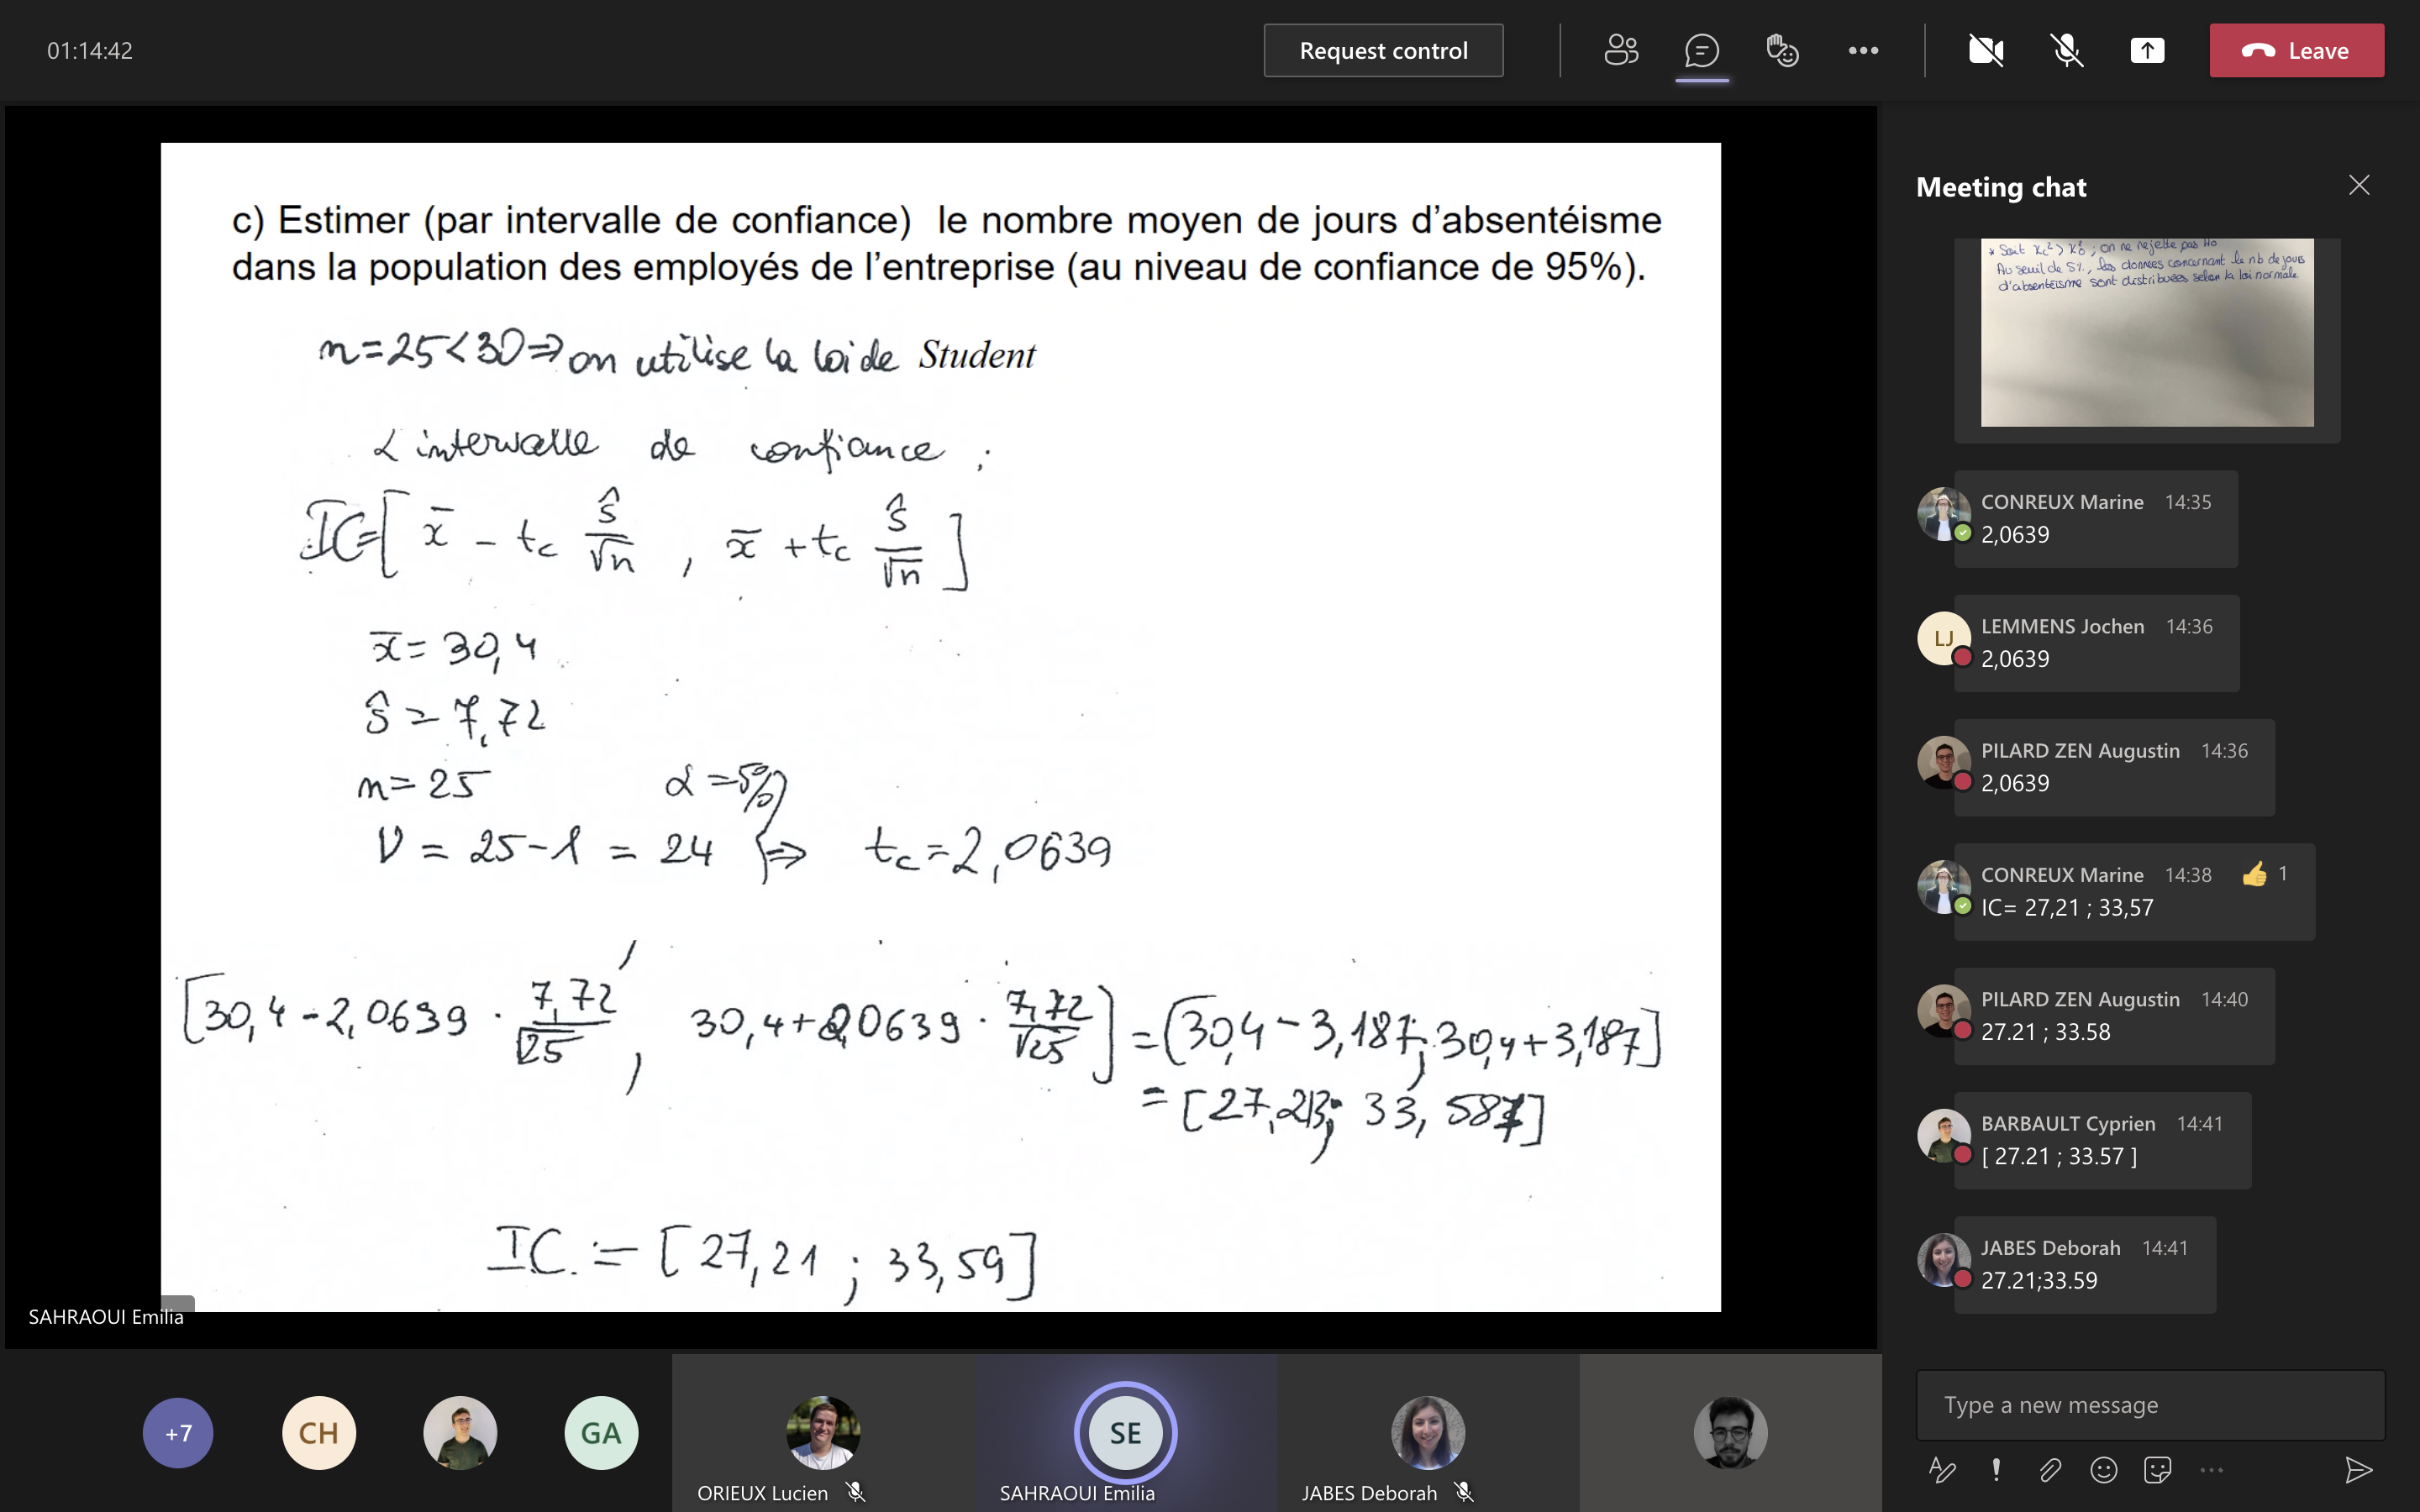 01:14:42
Request control
Leave
c) Estimer (par intervalle de confiance) le nombre moyen de jours d'absentéisme
dans la population des employés de l'entreprise (au niveau de confiance de 95%).
n=25<30⇒ on utilise la loi de Student
L'intervalle de confiance :
IC=[ x̄ - tc ŝ/√n , x̄ + tc ŝ/√n ]
x̄ = 30,4
ŝ = 7,72
n = 25 α = 5%
ν = 25-1 = 24 } ⇒ tc = 2,0639
[30,4 - 2,0639 · 7,72/√25 , 30,4 + 2,0639 · 7,72/√25] = [30,4 - 3,187 ; 30,4 + 3,187]
= [27,213 ; 33,587]
IC = [27,21 ; 33,59]
SAHRAOUI Emilia
Meeting chat
* Soit Xc² > X0² ; on ne rejette pas H0
Au seuil de 5%, les données concernant le nb de jours
d'absentéisme sont distribuées selon la loi normale
CONREUX Marine 14:35
2,0639
LJ
LEMMENS Jochen 14:36
2,0639
PILARD ZEN Augustin 14:36
2,0639
CONREUX Marine 14:38 👍 1
IC= 27,21 ; 33,57
PILARD ZEN Augustin 14:40
27.21 ; 33.58
BARBAULT Cyprien 14:41
[ 27.21 ; 33.57 ]
JABES Deborah 14:41
27.21;33.59
Type a new message
+7
CH
GA
SE
ORIEUX Lucien
SAHRAOUI Emilia
JABES Deborah